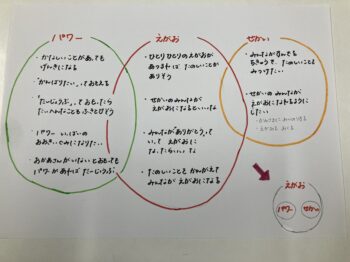 パワー
・かなしいことがあっても
げんきになる
・"がんばりたい"っておもえる
・"だーじょうぶ"っておもったら
たいへんなこともふきとびそう
・パワー いっぱいの
おおきいくみになりたい
・あかあさんがいないとおもっても
パワーがあればだーじょうぶ!
えがお
・ひとりひとりのえがおが
あつまれば たのしいことが
ありそう
・せかいのみんなが
えがおになるといいな
・みんなが"ありがとう"って
いって えがおに
なったらいいな
・たのしいことを かんがえて
みんなが えがおになる
せかい
・みんながすんでる
ちきゅうで、たのしいことを
みつけたい
・せかいの みんなが
えがおになれるように
したい
えがお
パワー
せかい